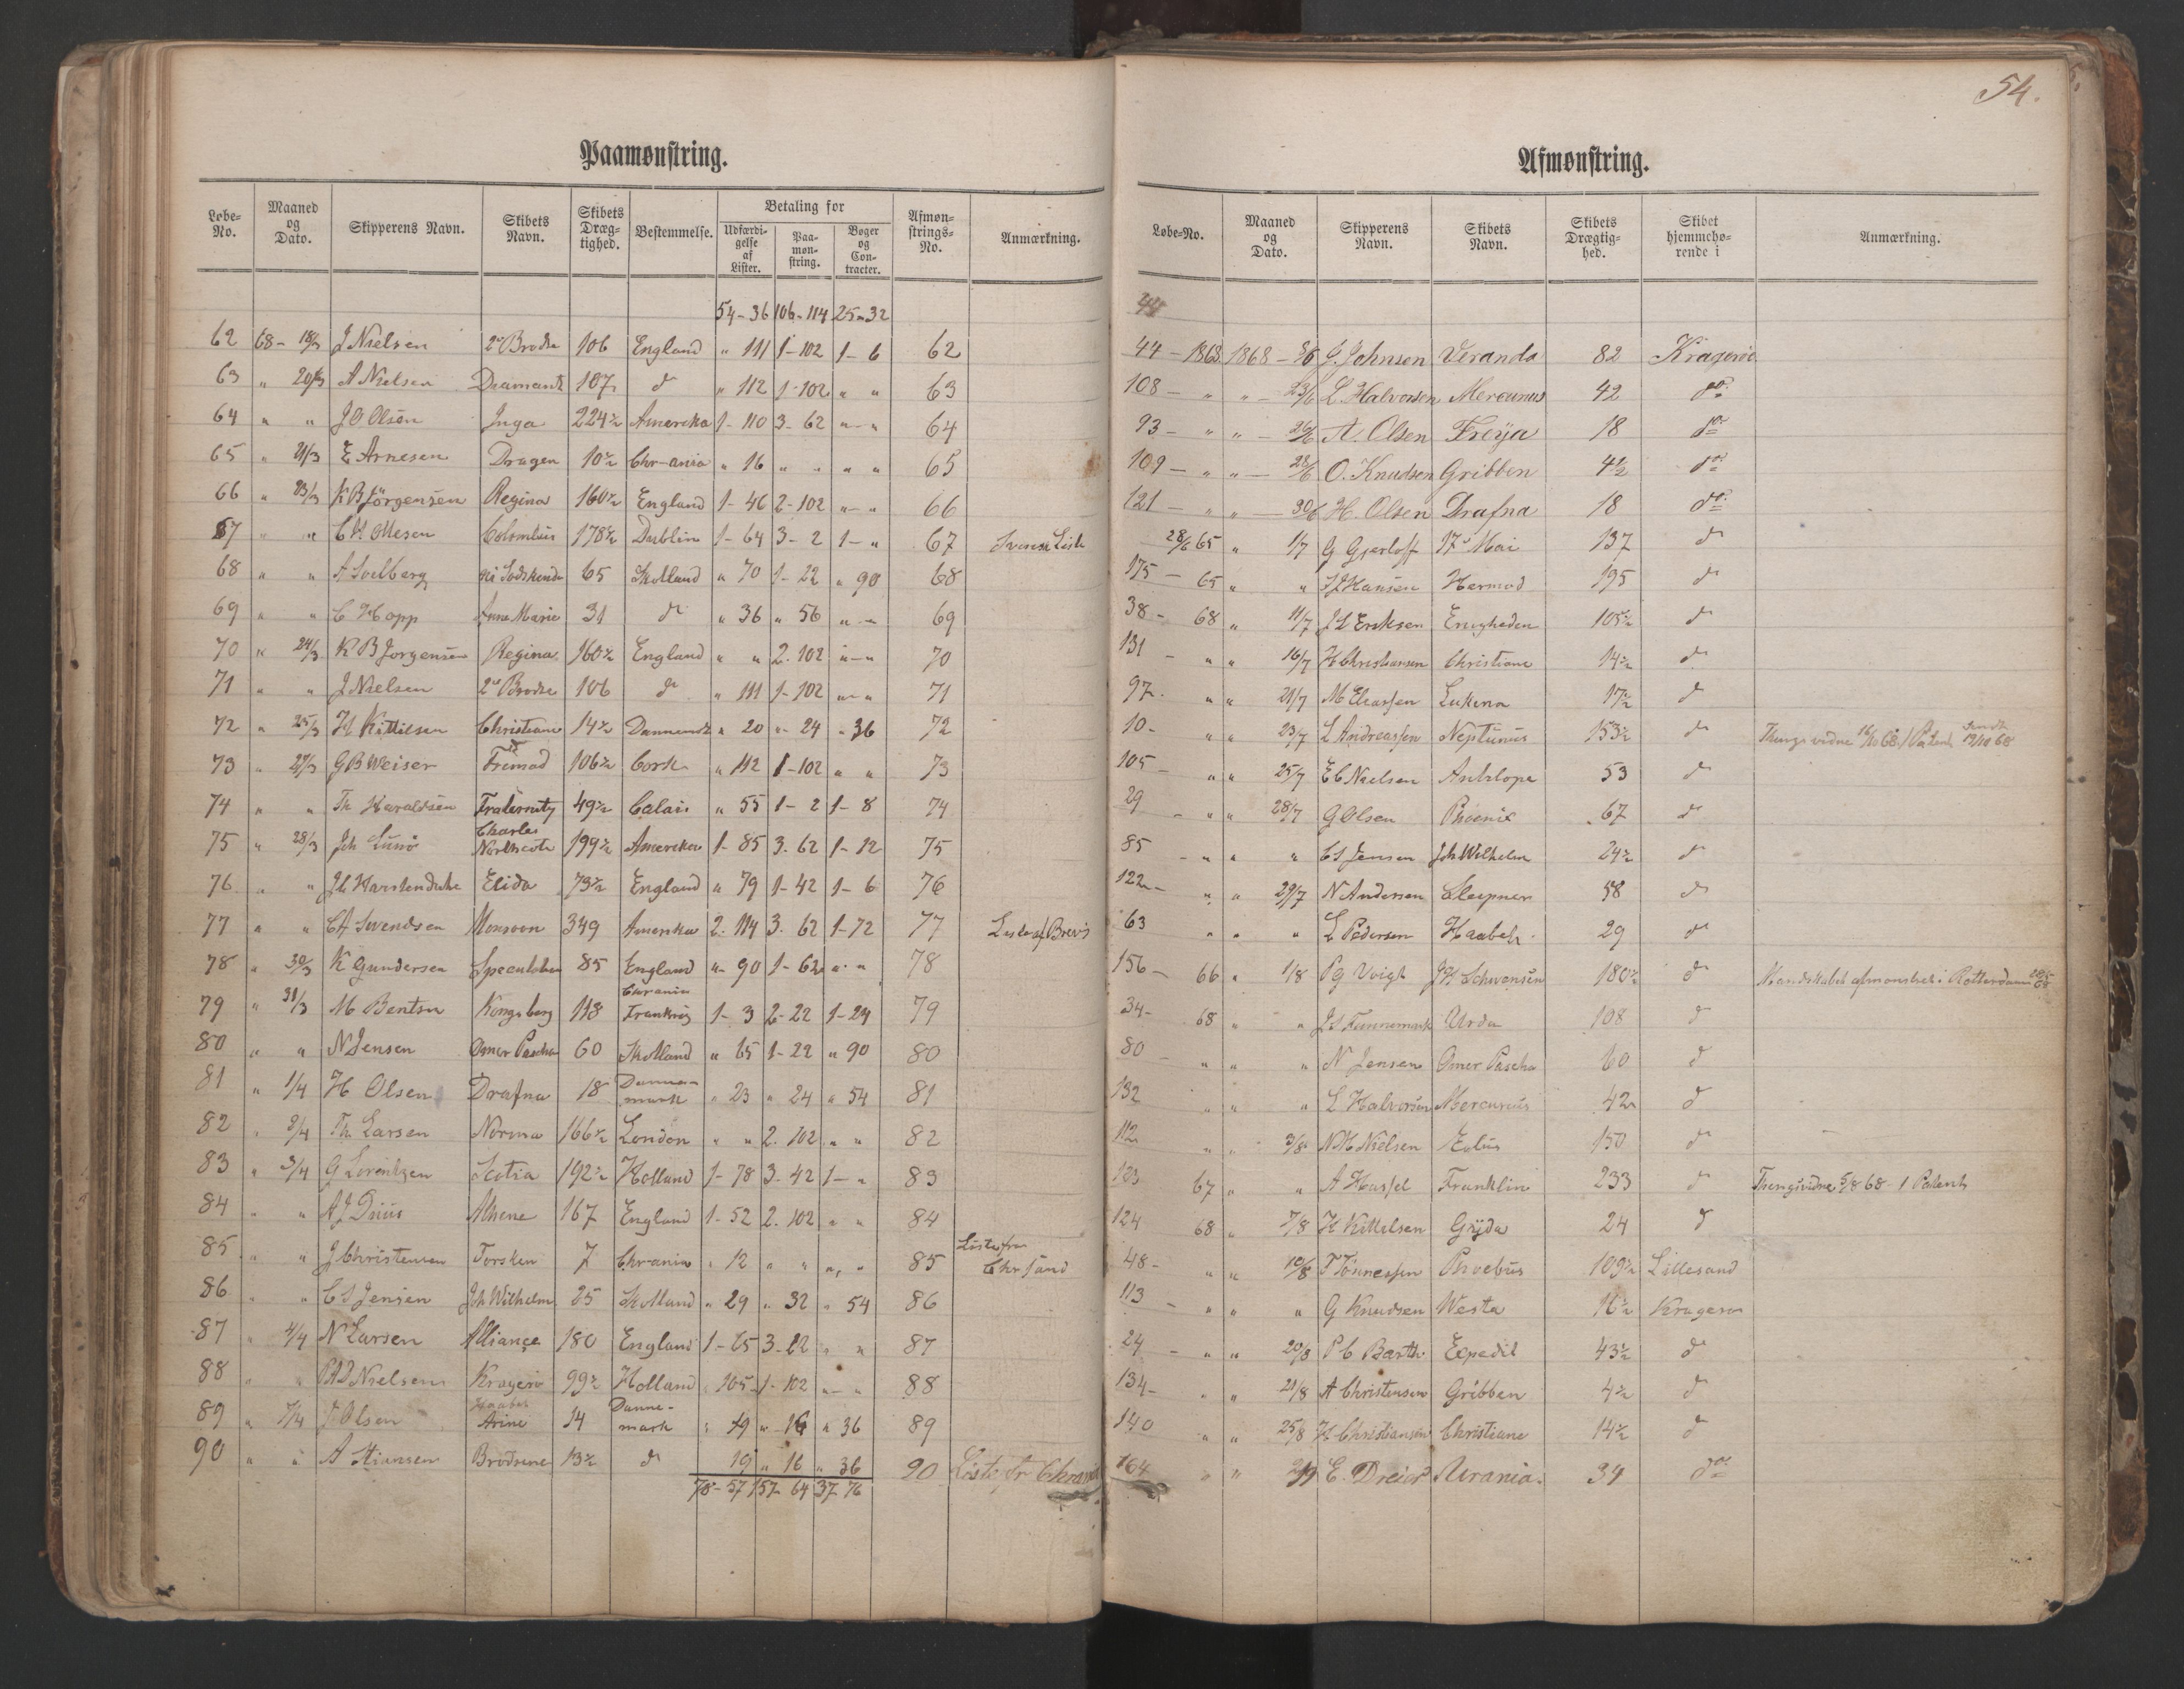 54.
Paamønstring.
Løbe-No. Maaned og Dato. Skipperens Navn. Skibets Navn. Skibets Dræg-tighed. Bestemmelse. Betaling for Udfærdi-gelse af Lister. Paa-møn-string. Bøger og Con-tracter. Afmøn-strings-No. Anmærkning.
54-36 106-114 25-32
62 68- 18/3 J Nielsen 2de Brødre 106 England " 111 1-102 1-6 62
63 " 20/3 A Nielsen Diamant 107 do " 112 1-102 " " 63
64 " " J O Olsen Inga 224½ Amerika 1-110 3-62 "-" 64
65 " 21/3 E Arnesen Dragen 10½ Chr-ania " 16 " " " " 65
66 " 23/3 K B Jörgensen Regina 160½ England 1-46 2-102 "-" 66
67 " " C H Ollesen Colombus 178½ Dublin 1-64 3-2 1-" 67 Svensk Liste
68 " " A Soelberg 65 Skotland " 70 1-22 " 90 68
69 " " C Hopp Anne Marie 31 do " 36 " 56 "-" 69
70 " 24/3 K B Jorgensen Regina 160½ England " " 2-102 "-" 70
71 " " J Nielsen 2de Brødre 106 do " 111 1-102 "-" 71
72 " 25/3 H Kittilsen Christiane 14½ Dannemk " 20 "-24 "-36 72
73 " 27/3 G B Weiser Fremad 106½ Cork " 112 1-102 " " 73
74 " " Th Haraldsen Fraternity 49½ Calais " 55 1-2 1-8 74
75 " 28/3 Joh Lunö Charles Northcote 199½ Amerika 1-85 3-62 1-12 75
76 " " Elida 73½ England " 79 1-42 1-6 76
77 " " C A Svendsen Monsoon 349 Amerika 2-114 3-62 1-72 77 Liste af Brevig
78 " 30/3 K Gundersen Speculation 85 England "-90 1-62 "-" 78
79 " 31/3 M Bentsen Kongsberg 118 Chrania Frankrig 1-3 2-22 1-24 79
80 " " N Jensen Omer Pascha 60 Skotland " 65 1-22 " 90 80
81 " 1/4 H Olsen Drafna 18 Danne-mark " 23 " 24 " 54 81
82 " 2/4 Th Larsen Norma 166½ London " " 2-102 " " 82
83 " 3/4 G Lorentzen Scotia 192½ Holland 1-78 3-42 1-" 83
84 " " A J Athene 167 England 1-52 2-102 " " 84
85 " " J Christensen Torsken 7 Chrania " 12 " " " " 85 Liste fra Chrsand
86 " " C S Jensen Joh Wilhelm 25 Skotland " 29 " 32 " 54 86
87 " 4/4 N Larsen Alliance 180 England 1-65 3-22 " " 87
88 " " Nielsen Kragerø 99½ Holland " 105 1-102 "-" 88
89 " 7/4 J Olsen Haabet Arine 14 Danne-mark " 19 " 16 " 36 89
90 " " A Stiansen Brødrene 13½ do 19 " 16 " 36 90 Liste fr Chrania
78-57 157-64 37-76
Afmønstring.
Løbe-No. Maaned og Dato. Skipperens Navn. Skibets Navn. Skibets Drægtig-hed. Skibet hjemmehø-rende i Anmærkning.
44
44-1868 1868- J. Johnsen Veranda 82 Kragerøe
108- " "-23/6 L. Halvorsen Mercurius 42 do
93- " "-26/6 A. Olsen Freÿa 18 do
109- " "-28/6 O. Knudsen Gribben 4½ do
121- " "-30/6 H. Olsen Drafna 18 do
28/6 65 " 1/7 G Gjerloff 17de Mai 137 do
175-65 " " Hansen Hermod 195 do
38-68 " 11/7 J L Eriksen Enigheden 105½ do
131- " " 16/7 H Christiansen Christiane 14½ do
97- " " 21/7 M Eliassen Lukina 17½ do
10- " " 23/7 L Andreassen Neptunus 153½ do Thingsvidne 16/10 68 1 Patent Sendt 19/10 68
105- " " 25/7 E C Nielsen Antelope 53 do
29- " " 28/7 G Olsen Phoenix 67 do
85- " " " C S Jensen Joh Wilhelm 24½ do
122- " " 29/7 N Andersen Sleipner 58 do
63 " " " L Pedersen Haabet 29 do
156-66 " 1/8 P G Voigt J H Schwensen 180½ do Mandskabet afmønstret i Rotterdam
34-68 " " J S Funnemark Urda 108 do
80- " " " N Jensen Omer Pascha 60 do
132 " " " L Halvorsen Mercurius 42 do
112 " " 3/8 N M Nielsen Eolus 150 do
123 67 " " A Hassel Franklin 233 do Thingsvidne 5/8 68 1 Patent
124 68 " 7/8 H Kittelsen Gÿda 24 do
48- " " 10/8 T Tönnessen Phoebus 109½ Lillesand
113- " " " G Knudsen Westa 16½ Kragerø
24- " " 20/8 P C Barth Expedit 43½ do
134- " " 21/8 A Christensen Gribben 4½ do
140 " " 25/8 H Christiansen Christiane 14½ do
164 " " E. Dreiør Urania. 34 do